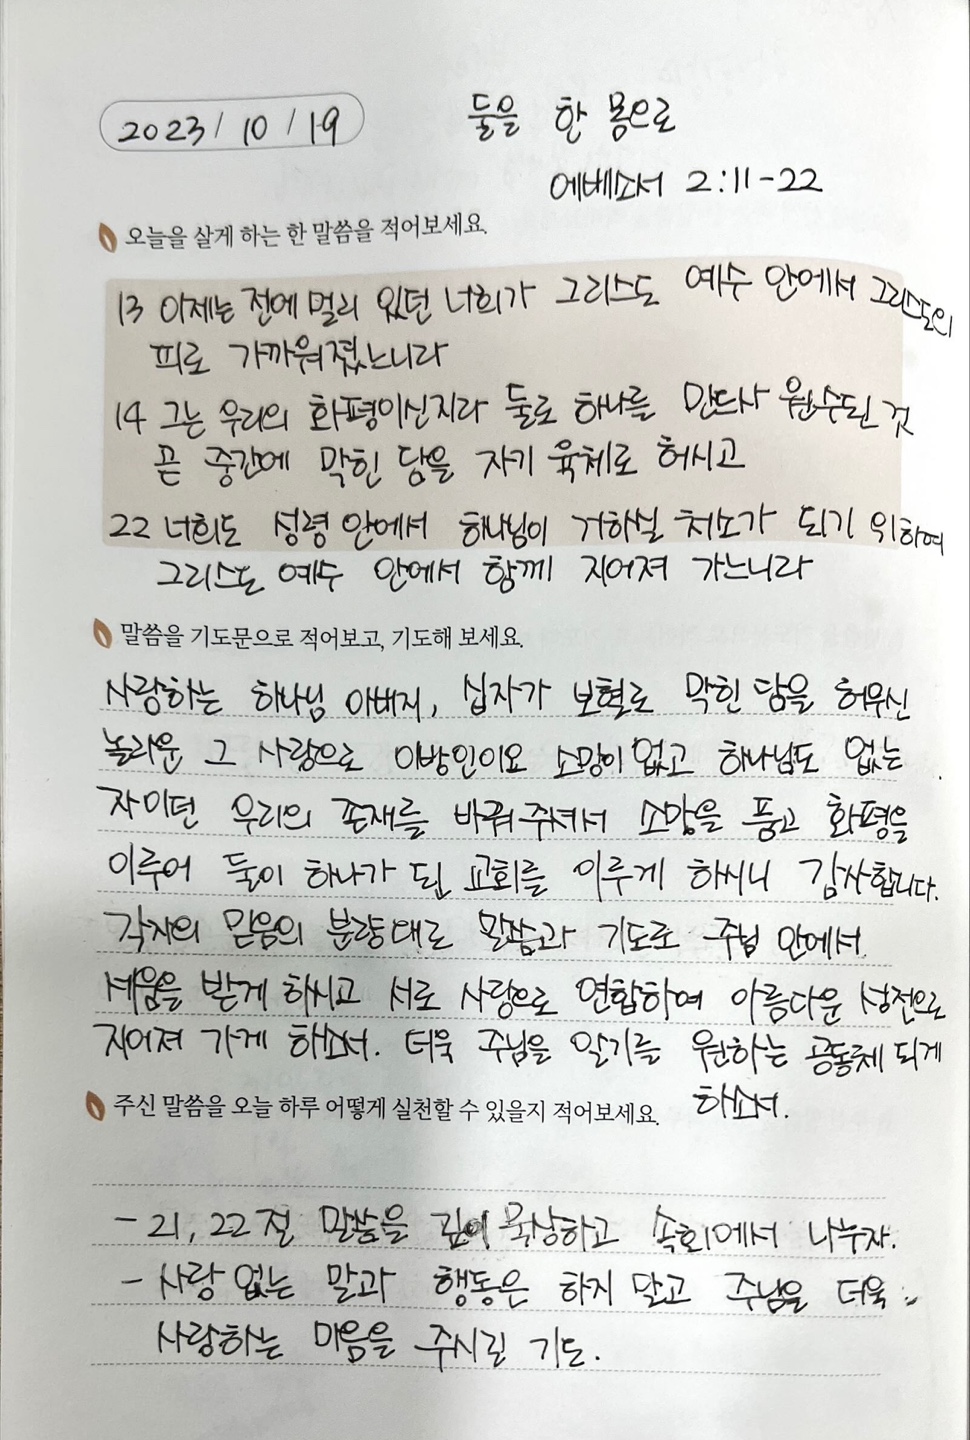 2023/10/19
둘을 한 몸으로
에베소서 2:11-22
오늘을 살게 하는 한 말씀을 적어보세요.
13 이제는 전에 멀리 있던 너희가 그리스도 예수 안에서 그리스도의
피로 가까워졌느니라
14 그는 우리의 화평이신지라 둘로 하나를 만드사 원수된 것
곧 중간에 막힌 담을 자기 육체로 허시고
22 너희도 성령 안에서 하나님이 거하실 처소가 되기 위하여
그리스도 예수 안에서 함께 지어져 가느니라
말씀을 기도문으로 적어보고, 기도해 보세요.
사랑하는 하나님 아버지, 십자가 보혈로 막힌 담을 허무신
놀라운 그 사랑으로 이방인이요 소망이 없고 하나님도 없는
자이던 우리의 존재를 바꿔주셔서 소망을 품고 화평을
이루어 둘이 하나가 된 교회를 이루게 하시니 감사합니다.
각자의 믿음의 분량대로 말씀과 기도로 주님 안에서
세움을 받게 하시고 서로 사랑으로 연합하여 아름다운 성전으로
지어져 가게 하소서. 더욱 주님을 알기를 원하는 공동체 되게
하소서.
주신 말씀을 오늘 하루 어떻게 실천할 수 있을지 적어보세요.
- 21, 22절 말씀을 깊이 묵상하고 속회에서 나누자.
- 사랑 없는 말과 행동은 하지 말고 주님을 더욱
사랑하는 마음을 주시길 기도.